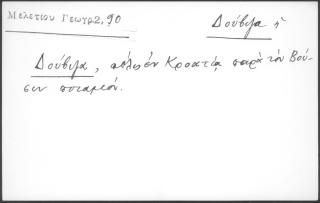 Μελετίου Γεωγρ2,90
Δούβιζα ἡ
Δούβιζα, πόλις ἐν Κροατίᾳ παρὰ τὸν Βού-
σιν ποταμόν.